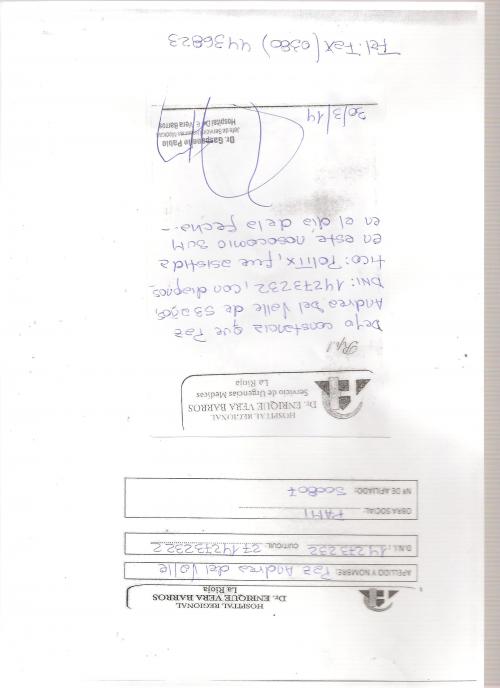 HOSPITAL REGIONAL
Dr. ENRIQUE VERA BARROS
La Rioja
APELLIDO Y NOMBRE: Paz Andrea del Valle
D.N.I.: 14273232 CUIT/CUIL: 27142732322
OBRA SOCIAL: PAMI
Nº DE AFILIADO: 500807
HOSPITAL REGIONAL
Dr. ENRIQUE VERA BARROS
Servicio de Urgencias Medicas
La Rioja
Dejo constancia que Paz
Andrea Del Valle de 53 años,
DNI: 14273232, con diagnos
tico: Politx, fue asistida
en este nosocomio SUM
en el día de la fecha.-
30/3/14
Dr. Pablo
Jefe de Servicio
Hospital Dr. E. Vera Barros
Tel: Fax (0380) 4436823